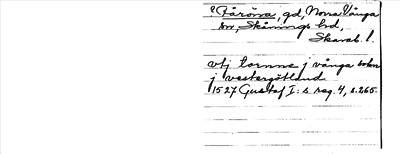 ? Fåröna, gd, Norra Vånga
sn, Skånings hd,
Skarab. l.
vtj tornmo j vånga sokn
j vestergötland
1527 Gustaf I:s reg. 4, s. 265.